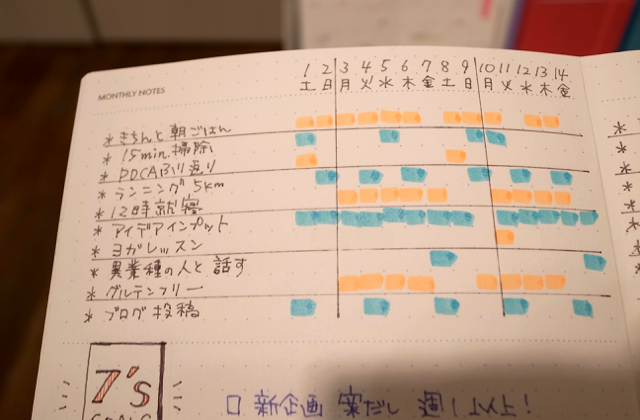 MONTHLY NOTES
1 2 3 4 5 6 7 8 9 10 11 12 13 14
土 日 月 火 水 木 金 土 日 月 火 水 木 金
* きちんと朝ごはん
* 15min.掃除
* PDCAふり返り
* ランニング5km
* 12時就寝
* アイデアインプット
* ヨガレッスン
* 異業種の人と話す
* グルテンフリー
* ブログ投稿
7's
GOALS
□ 新企画 案だし 週1以上!